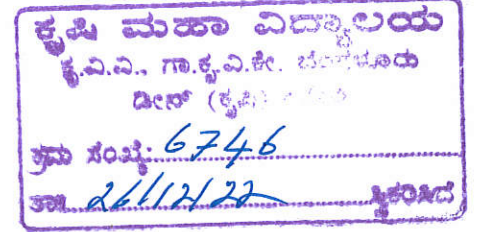 ಕೃಷಿ ಮಹಾ ವಿದ್ಯಾಲಯ
ಕೃ.ವಿ.ವಿ., ಗಾ.ಕೃ.ವಿ.ಕೇ. ಬೆಂಗಳೂರು
ಡೀನ್ (ಕೃಷಿ)
ಕ್ರಮ ಸಂಖ್ಯೆ: 6746
ತಾ. 26/12/22 ಸ್ವೀಕರಿಸಿದೆ